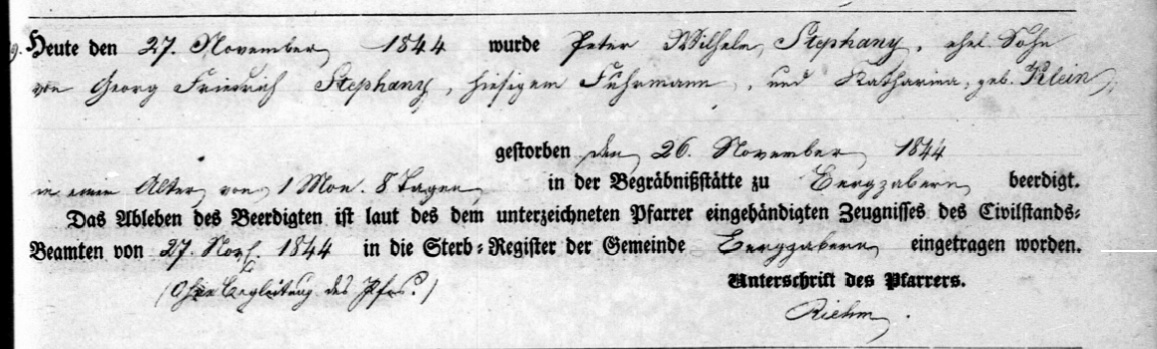 9. Heute den 27. November 1844 wurde Peter Wilhelm Stephany, ehel. Sohn
von Georg Friedrich Stephany, hiesigem Fuhrmann, und Katharina, geb. Klein,
gestorben den 26. November 1844
in einem Alter von 1 Mon. 8 Tagen in der Begräbnißstätte zu Bergzabern beerdigt.
Das Ableben des Beerdigten ist laut des dem unterzeichneten Pfarrer eingehändigten Zeugnisses des Civilstands-
Beamten von 27. Nov. 1844 in die Sterb-Register der Gemeinde Bergzabern eingetragen worden.
(Ohne Begleitung des Pfrs.) Unterschrift des Pfarrers.
Riehm.